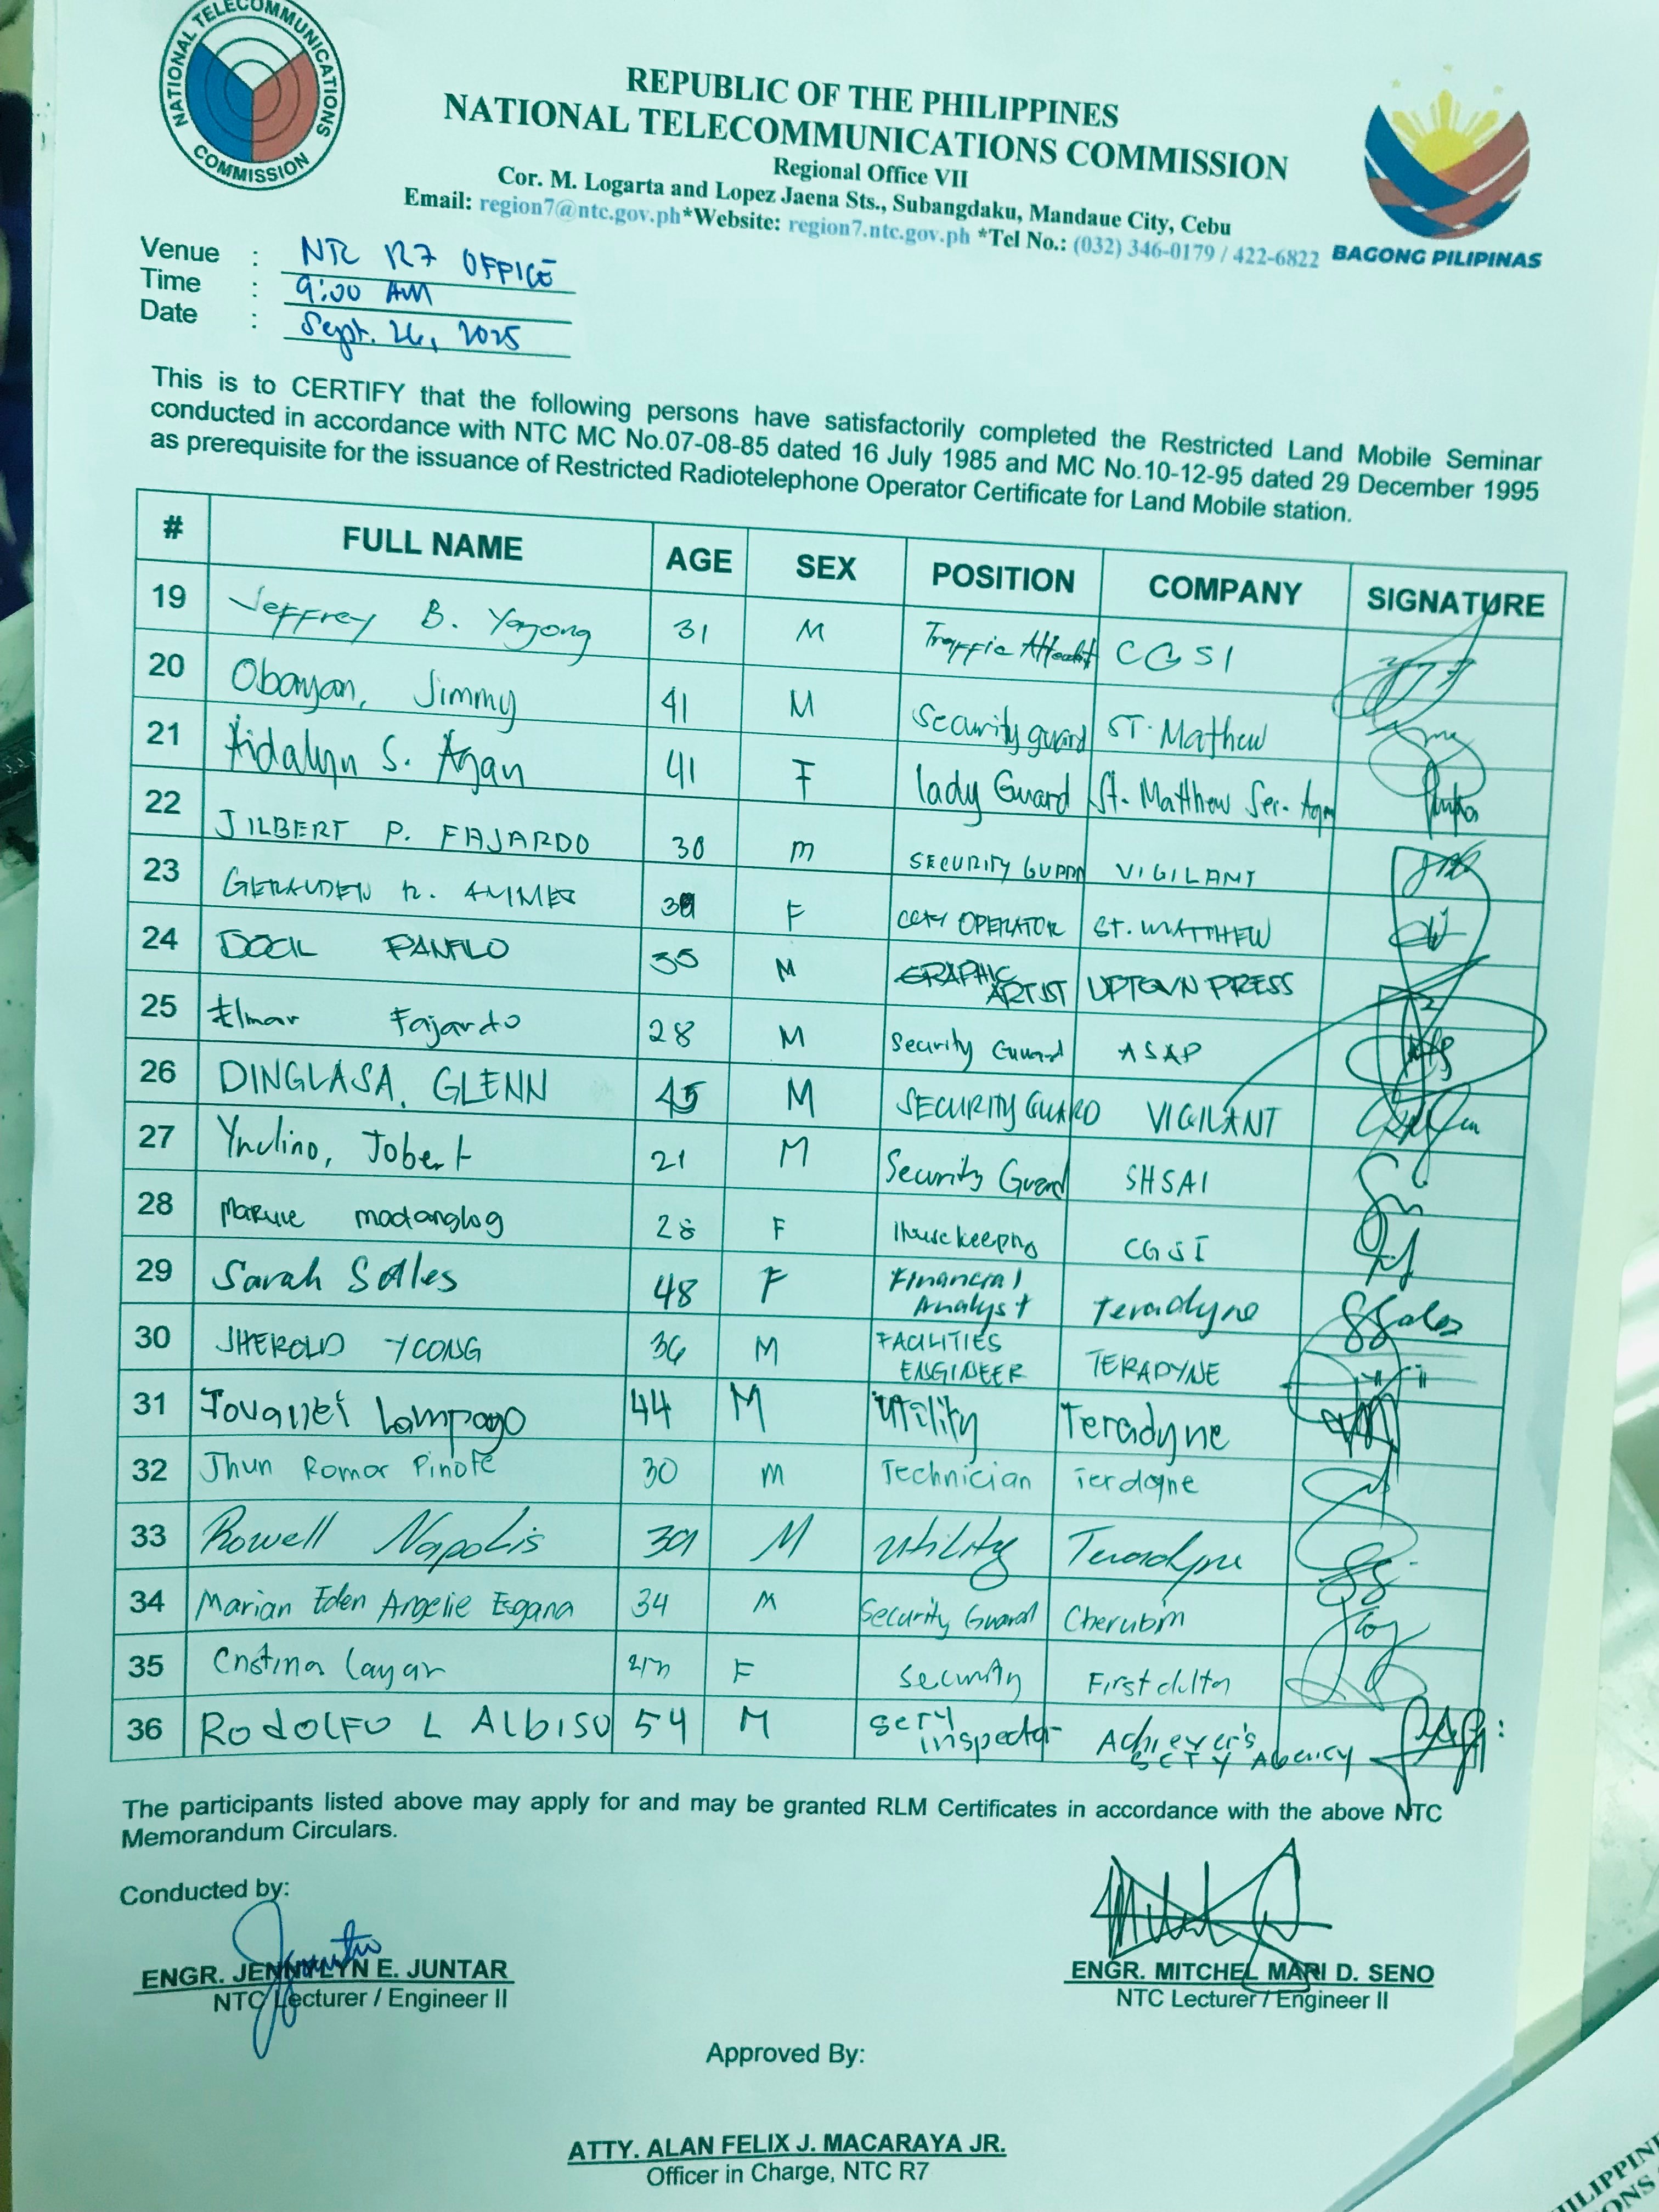 NATIONAL TELECOMMUNICATIONS COMMISSION
REPUBLIC OF THE PHILIPPINES
NATIONAL TELECOMMUNICATIONS COMMISSION
Regional Office VII
Cor. M. Logarta and Lopez Jaena Sts., Subangdaku, Mandaue City, Cebu
Email: region7@ntc.gov.ph*Website: region7.ntc.gov.ph *Tel No.: (032) 346-0179 / 422-6822
BAGONG PILIPINAS
Venue : NTC R7 OFFICE
Time : 9:00 AM
Date : Sept. 26, 2025
This is to CERTIFY that the following persons have satisfactorily completed the Restricted Land Mobile Seminar
conducted in accordance with NTC MC No.07-08-85 dated 16 July 1985 and MC No.10-12-95 dated 29 December 1995
as prerequisite for the issuance of Restricted Radiotelephone Operator Certificate for Land Mobile station.
# FULL NAME AGE SEX POSITION COMPANY SIGNATURE
19 Jeffrey B. Yagong 31 M Traffic CGSI
20 Obayan, Jimmy 41 M Security guard ST. Mathew
21 S. Agan 41 F lady Guard St. Matthew Sec. Agn
22 JILBERT P. FAJARDO 30 M SECURITY GUARD VIGILANT
23 F CCTV OPERATOR ST. MATTHEW
24 DOCIL PANFILO 35 M GRAPHIC ARTIST UPTOWN PRESS
25 Elmar Fajardo 28 M Security Guard ASAP
26 DINGLASA, GLENN 45 M SECURITY GUARD VIGILANT
27 Jobert 21 M Security Guard SHSAI
28 madanglog 28 F House keeping CGSI
29 Sarah Salles 48 F Financial Analyst Teradyne
30 JHEROLD YCONG 36 M FACILITIES ENGINEER TERADYNE
31 Lampago 44 M Utility Teradyne
32 Jhun Romar Pinote 30 M Technician Terdayne
33 Rowell Napolis 39 M Utility Teradyne
34 Marian Eden Angelie Egana 34 M Security Guard Cherubim
35 Cristina Layar F Security First delta
36 RODOLFO L ALBISO 54 M Scty inspector Achiever's SCTY AGENCY
The participants listed above may apply for and may be granted RLM Certificates in accordance with the above NTC
Memorandum Circulars.
Conducted by:
ENGR. JENNYLYN E. JUNTAR
NTC Lecturer / Engineer II
ENGR. MITCHEL MARI D. SENO
NTC Lecturer / Engineer II
Approved By:
ATTY. ALAN FELIX J. MACARAYA JR.
Officer in Charge, NTC R7